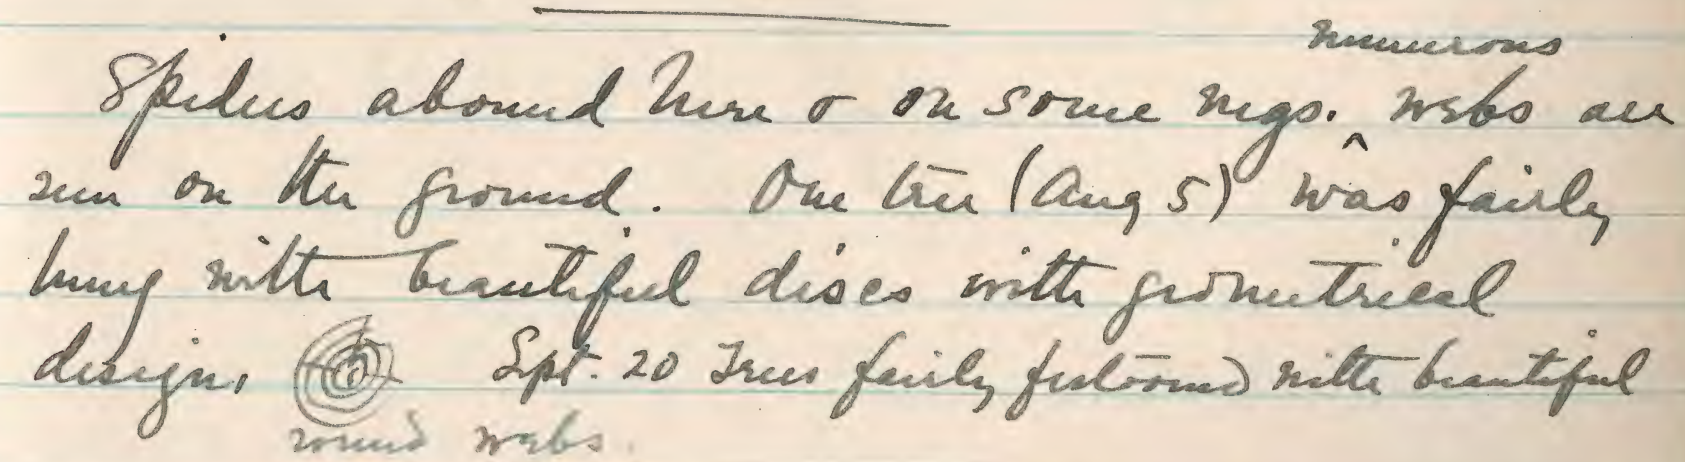 Spiders abound here & on some mgs. numerous webs are
seen on the ground. One tree (Aug 5) was fairly
hung with beautiful discs with geometrical
design. Spt. 20 Trees fairly festooned with beautiful
round webs.